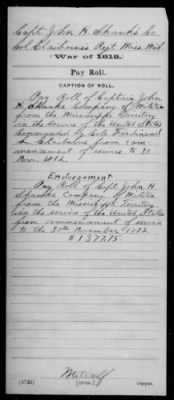 Capt. John H. Shanks Co.
Col. Claiborne's Regt. Miss. Mil.
(War of 1812.)
Pay Roll.
CAPTION OF ROLL.
Pay Roll of Captain John
H. Shanks Company of Militia
from the Mississippi Territory
in the service of the United States
Commanded by Colo Ferdinand
L. Claiborne from com-
mencement of service to 30
Novr. 1812.
Endorsement
Pay Roll of Capt John H.
Shanks Company of Militia
from the Mississippi Territory
in the service of the United States
from commencement of service
to the 30th November 1812.
$1377.15.
Metcalf
(572a) [OVER.] Copyist.